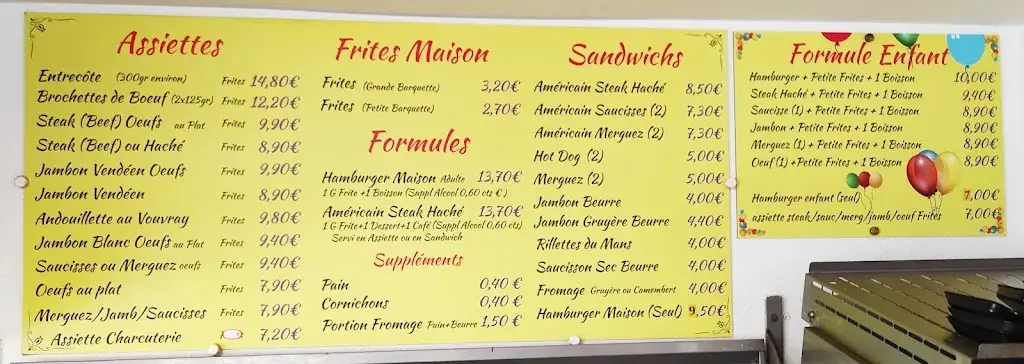 Assiettes
Entrecôte (300gr environ) Frites 14,80€
Brochettes de Boeuf (2x125gr) Frites 12,20€
Steak (Beef) Oeufs au Plat Frites 9,90€
Steak (Beef) ou Haché Frites 8,90€
Jambon Vendéen Oeufs Frites 9,90€
Jambon Vendéen Frites 8,90€
Andouillette au Vouvray Frites 9,80€
Jambon Blanc Oeufs au Plat Frites 9,40€
Saucisses ou Merguez oeufs Frites 9,40€
Oeufs au plat Frites 7,90€
Merguez/Jamb/Saucisses Frites 7,90€
Assiette Charcuterie 7,20€
Frites Maison
Frites (Grande Barquette) 3,20€
Frites (Petite Barquette) 2,70€
Formules
Hamburger Maison Adulte 13,70€
1 G Frite +1 Boisson (Suppl Alcool 0,60 cts €)
Américain Steak Haché 13,70€
1 G Frite+1 Dessert+1 Café (Suppl Alcool 0,60 cts)
Servi en Assiette ou en Sandwich
Suppléments
Pain 0,40 €
Cornichons 0,40 €
Portion Fromage Pain+Beurre 1,50 €
Sandwichs
Américain Steak Haché 8,50€
Américain Saucisses (2) 7,30€
Américain Merguez (2) 7,30€
Hot Dog (2) 5,00€
Merguez (2) 5,00€
Jambon Beurre 4,00€
Jambon Gruyère Beurre 4,40€
Rillettes du Mans 4,00€
Saucisson Sec Beurre 4,00€
Fromage Gruyère ou Camembert 4,00€
Hamburger Maison (Seul) 9,50€
Formule Enfant
Hamburger + Petite Frites + 1 Boisson 10,00€
Steak Haché + Petite Frites + 1 Boisson 9,40€
Saucisse (1) + Petite Frites + 1 Boisson 8,90€
Jambon + Petite Frites + 1 Boisson 8,90€
Merguez (1) + Petite Frites + 1 Boisson 8,90€
Oeuf (1) +Petite Frites + 1 Boisson 8,90€
Hamburger enfant (seul) 7,00€
assiette steak/sauc/merg/jamb/oeuf Frites 7,00€